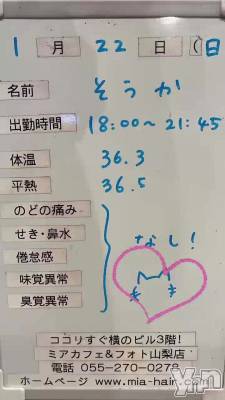 1月22日(日
名前 そうか
出勤時間 18:00〜21:45
体温 36.3
平熱 36.5
のどの痛み
せき・鼻水
倦怠感
味覚異常
臭覚異常
なし!
ココリすぐ横のビル3階!
ミアカフェ&フォト山梨店
電話 055-270-027
ホームページ www.mia-hair.